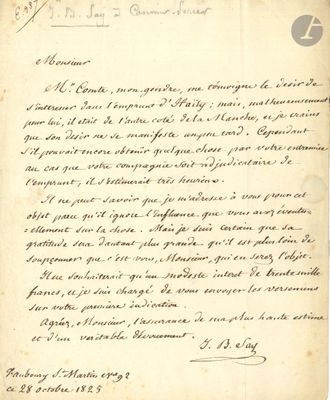 J. B. Say à Casimir Perier
Monsieur
Mr. Comte, mon gendre, me témoigne le désir de
s'intéresser dans l'emprunt d'Haïty; mais, malheureusement
pour lui, il était de l'autre coté de la Manche, et je crains
que son désir ne se manifeste un peu tard. Cependant
s'il pouvait encore obtenir quelque chose par votre entremise
au cas que votre compagnie soit adjudicataire de
l'emprunt, il s'estimerait très heureux.
Il ne peut savoir que je m'adresse à vous pour cet
objet parce qu'il ignore l'influence que vous avez éventu-
ellement sur la chose. Mais je suis certain que sa
gratitude sera d'autant plus grande qu'il est plus loin de
soupçonner que c'est vous, Monsieur, qui en serez l'objet.
Il ne souhaiterait qu'un modeste interet de trente mille
francs, et je suis chargé de vous envoyer les versemens
sur votre première indication.
Agréez, Monsieur, l'assurance de ma plus haute estime
et d'un véritable dévouement.
J. B. Say
Faubourg St. Martin No. 92
ce 28 octobre 1825